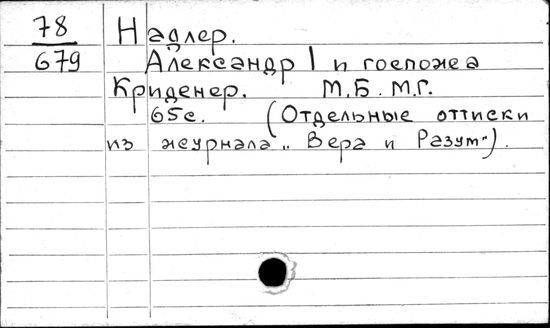 78 Надлер.
679 Александр I и госпожа
Криденер. М.Б.М.Г.
65с. (Отдельные оттиски
из журнала „Вера и Разум").